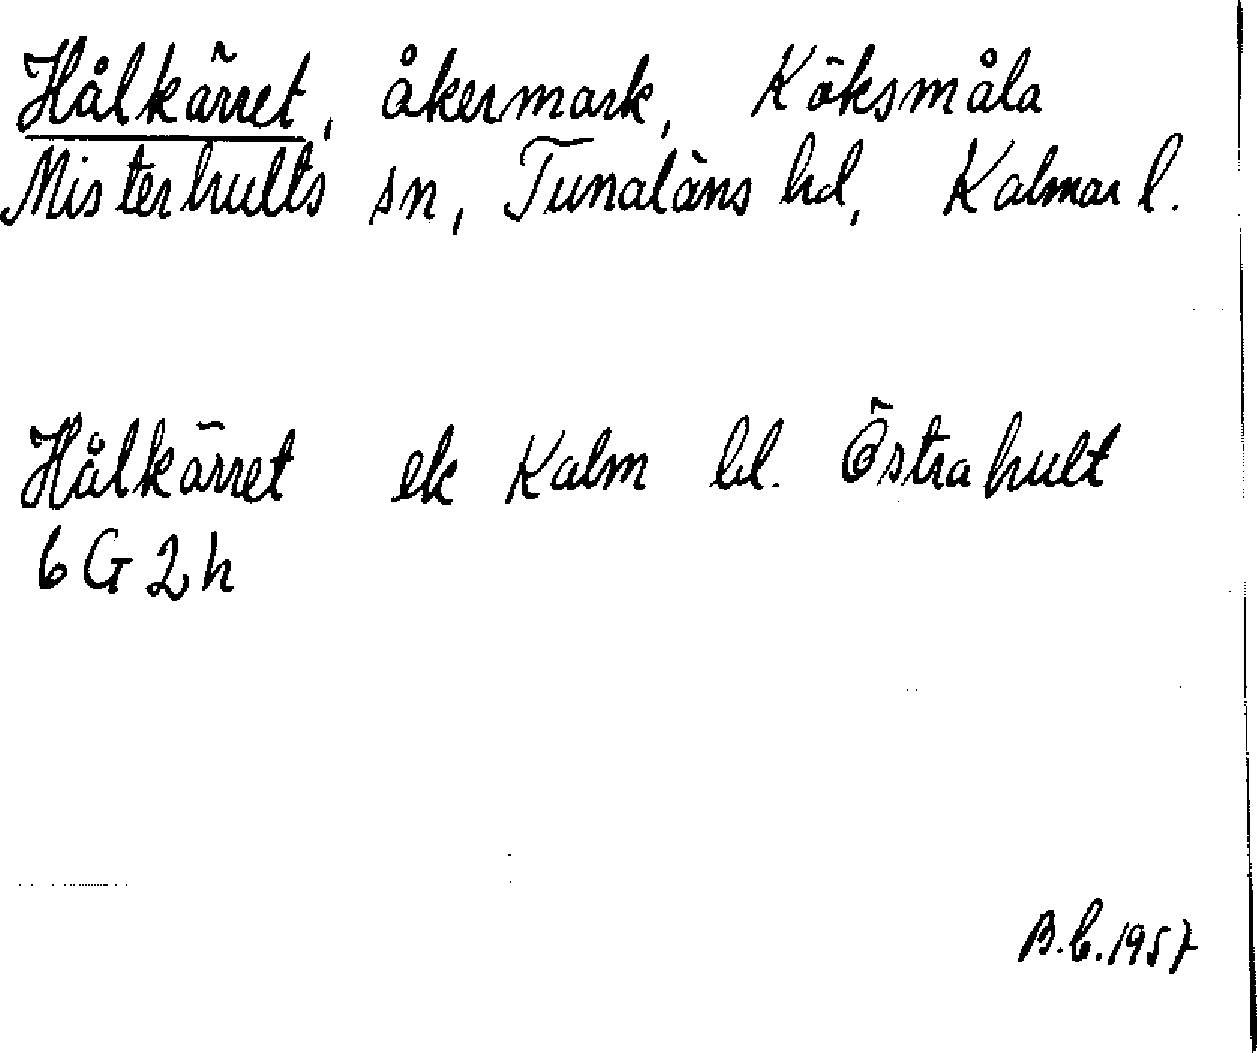 Hålkärret, åkermark, Köksmåla
Misterhults sn, Tunaläns hd, Kalmar l.
Hålkärret ek Kalm bl. Östrahult
6 G 2 h
B.C. 1957